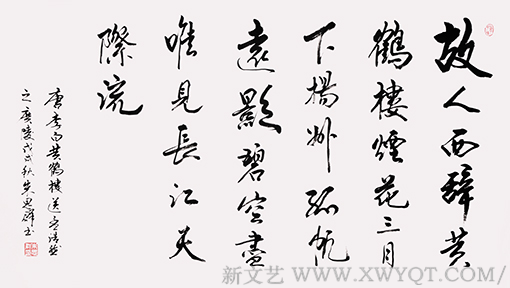 故人西辭黄
鶴樓煙花三月
下楊州孤帆
遠影碧空盡
唯見長江天
際流
唐李白黄鶴樓送孟浩然
之廣陵戊戌秋書
新文艺/WWW.XWYQT.COM